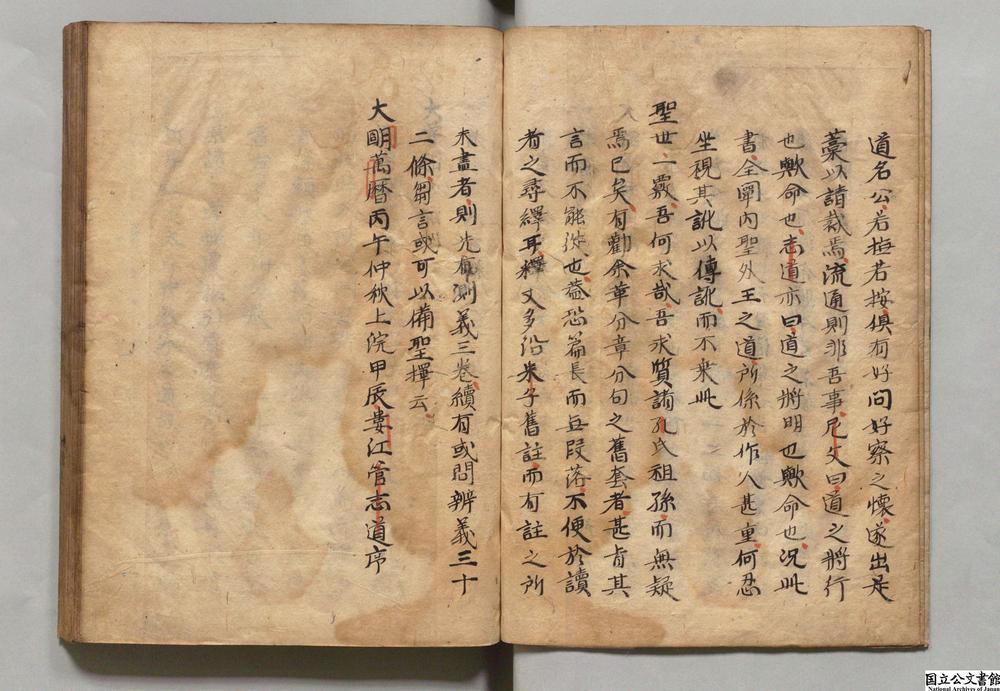 道名公若撫若按俱有好問好察之懷遂出是
藁以請裁焉流通則非吾事尼父曰道之將行
也歟命也志道亦曰道之將明也歟命也況此
書全闡内聖外王之道所係於作人甚重何忍
坐視其訛以傳訛而不乗此
聖世一覈吾何求哉吾求質諸孔氏祖孫而無疑
焉已矣有勸余葉分章分句之舊套者甚旨其
言而不能従也葢恐篇長而無段落不便於讀
者之尋繹耳釋文多沿朱子舊註而有註之所
未盡者則先有測義三巻續有或問辨義三十
二條芻言或可以備聖擇云
大明萬暦丙午仲秋上浣甲辰婁江管志道序
国立公文書館
National Archives of Japan